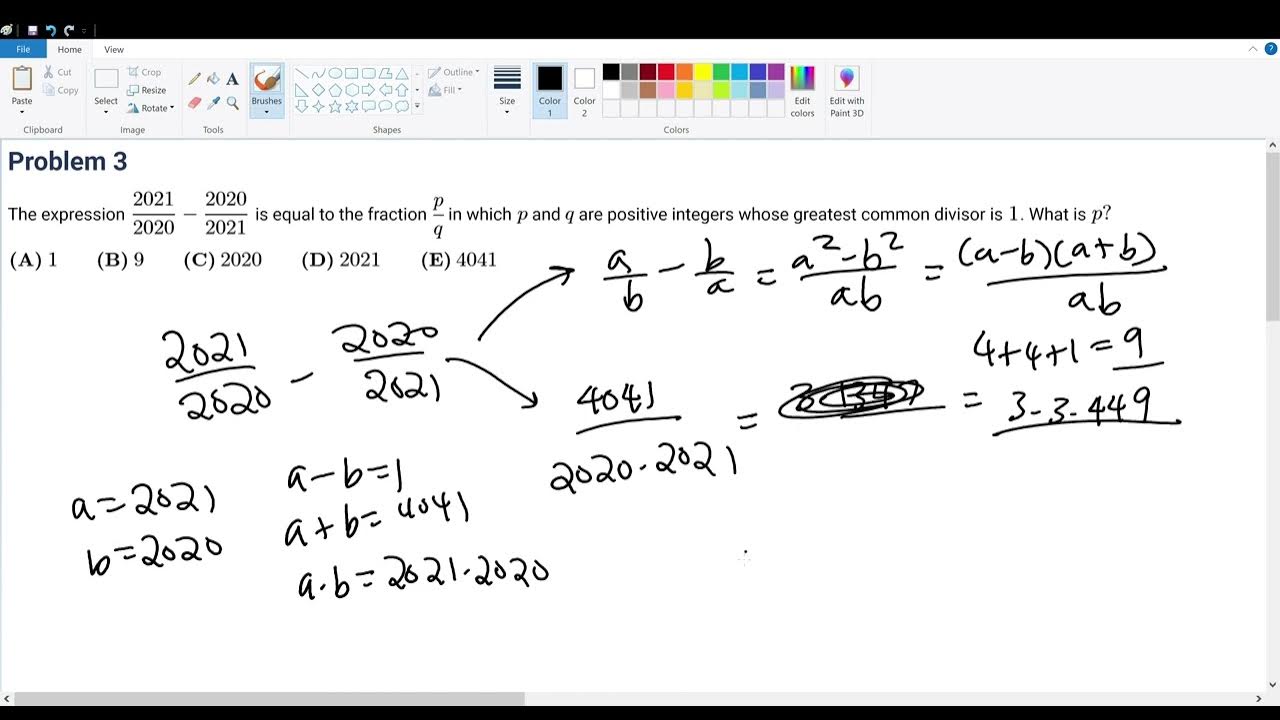 File Home View
Paste Cut Copy Select Crop Resize Rotate Brushes Outline Fill Size Color 1 Color 2 Edit colors Edit with Paint 3D
Clipboard Image Tools Shapes Colors
Problem 3
The expression 2021/2020 − 2020/2021 is equal to the fraction p/q in which p and q are positive integers whose greatest common divisor is 1. What is p?
(A) 1 (B) 9 (C) 2020 (D) 2021 (E) 4041
a/b − b/a = a²−b²/ab = (a−b)(a+b)/ab
2021/2020 − 2020/2021
4+4+1=9
4041/2020·2021 = = 3·3·449
a=2021
b=2020
a−b=1
a+b=4041
a·b=2021·2020